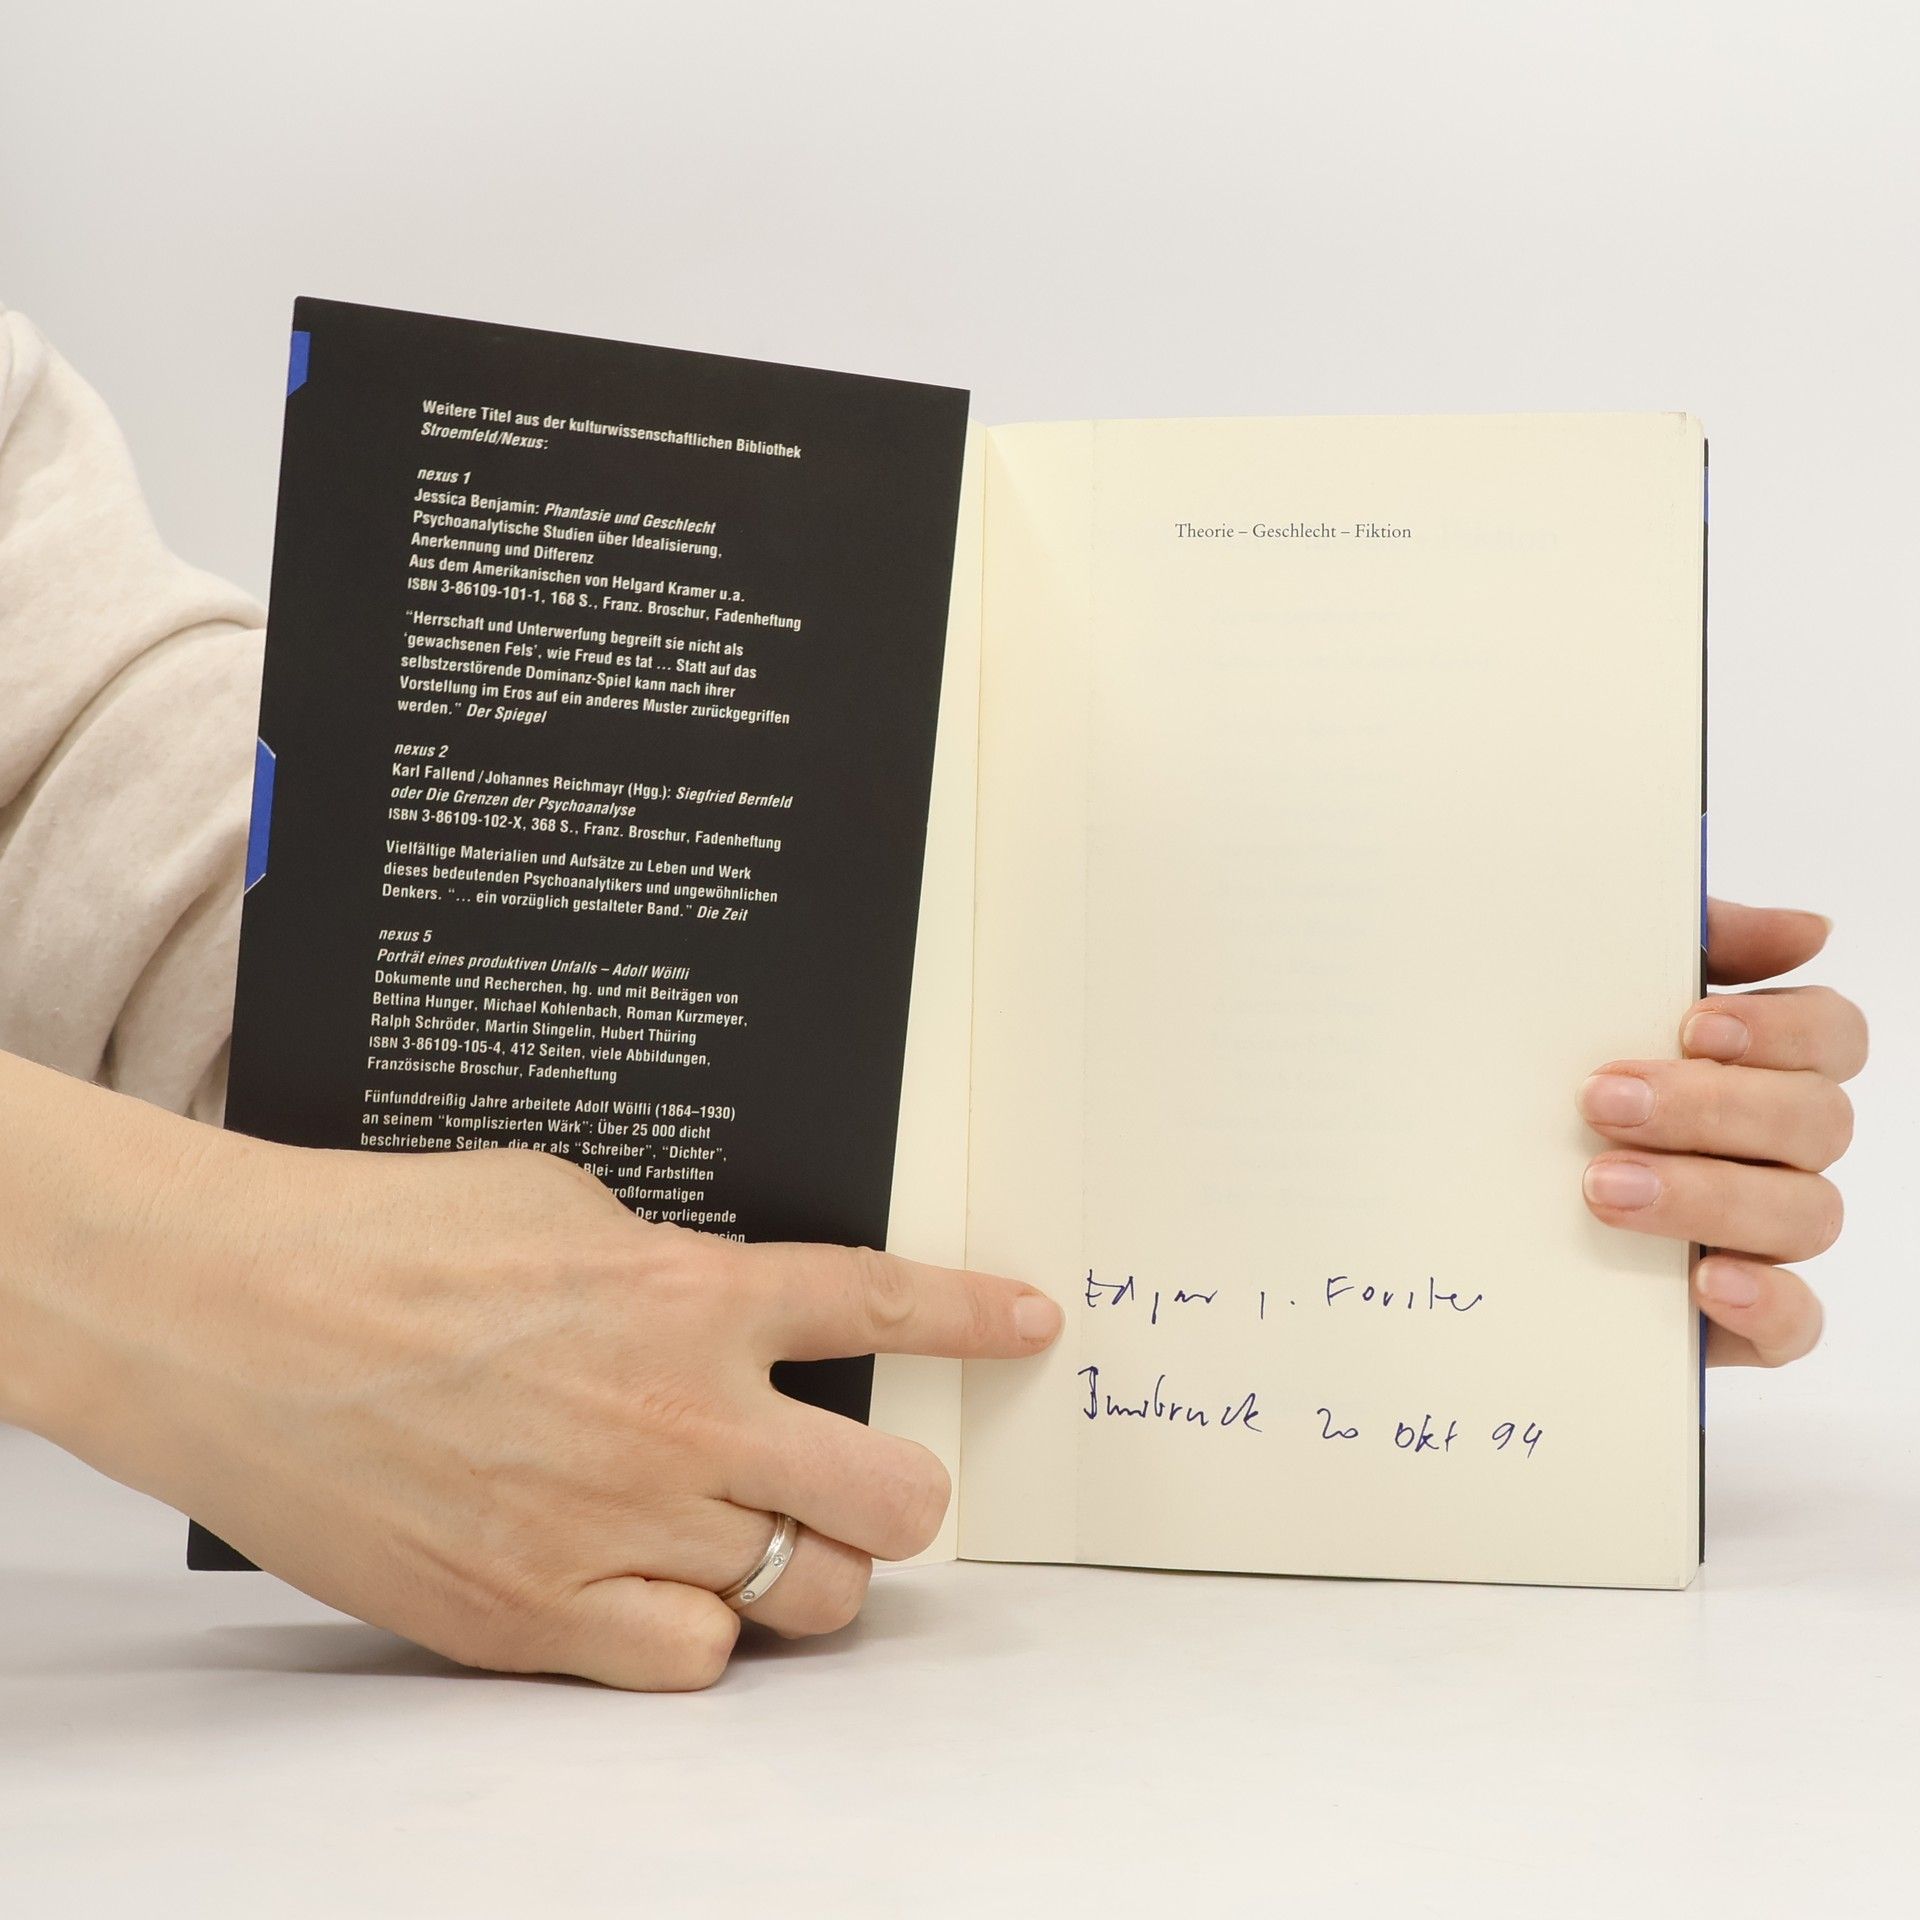 Weitere Titel aus der kulturwissenschaftlichen Bibliothek
Stroemfeld/Nexus:
nexus 1
Jessica Benjamin: Phantasie und Geschlecht
Psychoanalytische Studien über Idealisierung,
Anerkennung und Differenz
Aus dem Amerikanischen von Helgard Kramer u.a.
ISBN 3-86109-101-1, 168 S., Franz. Broschur, Fadenheftung
"Herrschaft und Unterwerfung begreift sie nicht als
'gewachsenen Fels', wie Freud es tat ... Statt auf das
selbstzerstörende Dominanz-Spiel kann nach ihrer
Vorstellung im Eros auf ein anderes Muster zurückgegriffen
werden." Der Spiegel
nexus 2
Karl Fallend / Johannes Reichmayr (Hgg.): Siegfried Bernfeld
oder Die Grenzen der Psychoanalyse
ISBN 3-86109-102-X, 368 S., Franz. Broschur, Fadenheftung
Vielfältige Materialien und Aufsätze zu Leben und Werk
dieses bedeutenden Psychoanalytikers und ungewöhnlichen
Denkers. "... ein vorzüglich gestalteter Band." Die Zeit
nexus 5
Porträt eines produktiven Unfalls – Adolf Wölfli
Dokumente und Recherchen, hg. und mit Beiträgen von
Bettina Hunger, Michael Kohlenbach, Roman Kurzmeyer,
Ralph Schröder, Martin Stingelin, Hubert Thüring
ISBN 3-86109-105-4, 412 Seiten, viele Abbildungen,
Französische Broschur, Fadenheftung
Fünfunddreißig Jahre arbeitete Adolf Wölfli (1864–1930)
an seinem "kompliszierten Wärk": Über 25 000 dicht
beschriebene Seiten, die er als "Schreiber", "Dichter",
Blei- und Farbstiften
großformatigen
Der vorliegende
Theorie – Geschlecht – Fiktion
Edgar J. Forster
Innsbruck 20 Okt 94